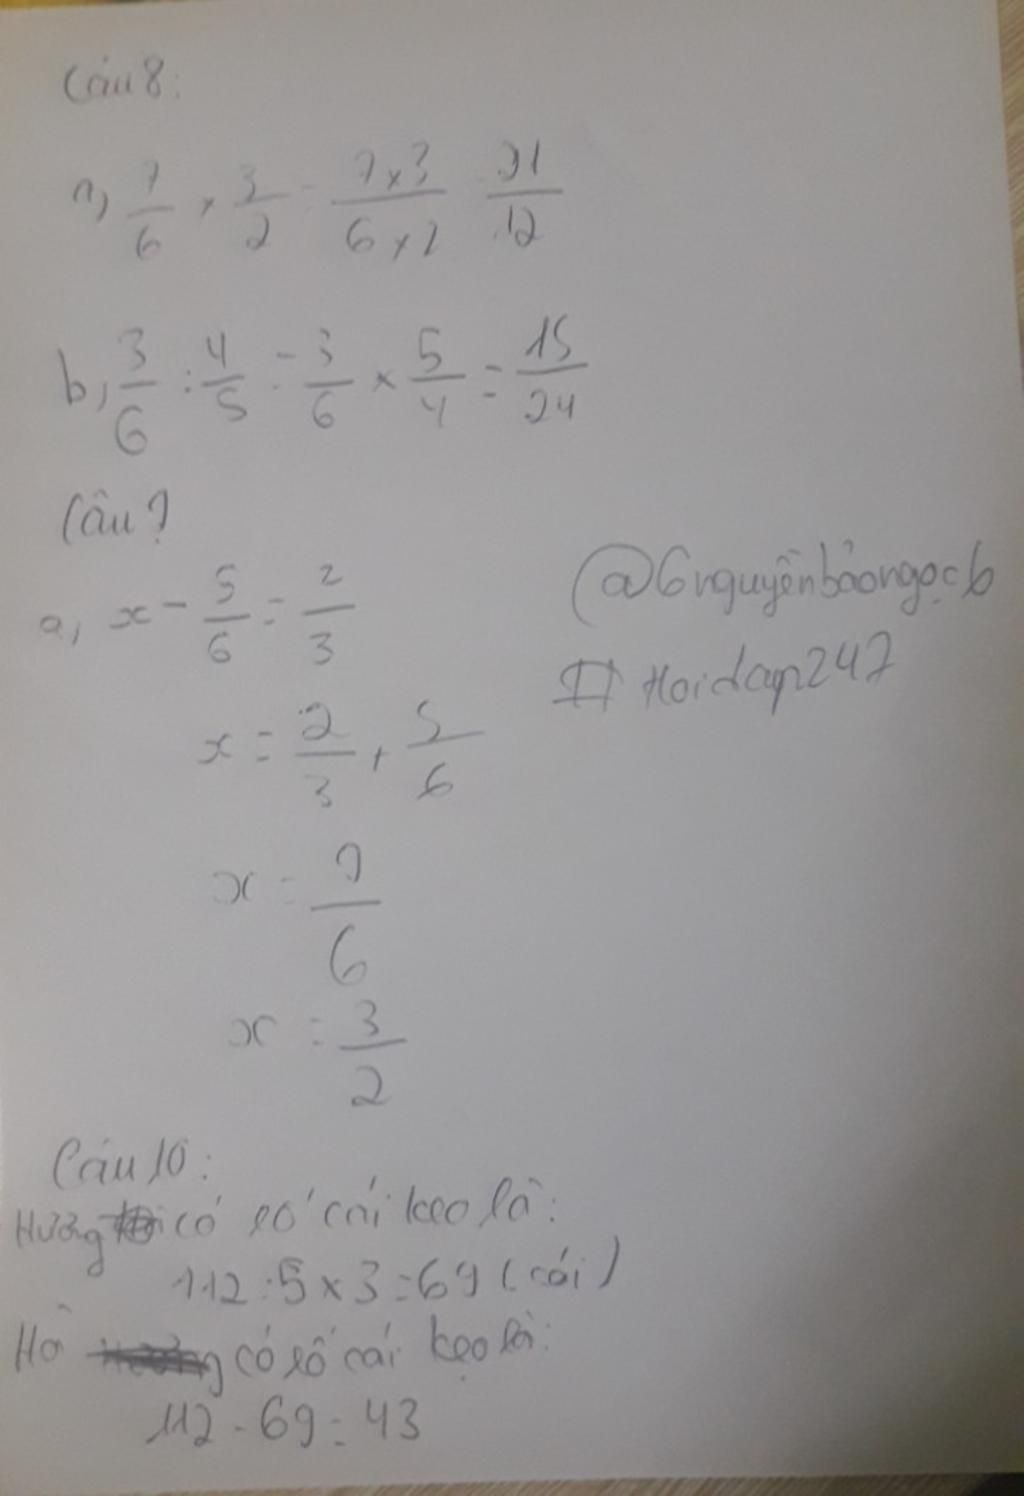 Câu 8:
a, 7/6 x 3/2 = 7x3/6x2 21/12
b, 3/6 : 4/5 = 3/6 x 5/4 = 15/24
Câu 9
a, x - 5/6 = 2/3
x = 2/3 + 5/6
x = 9/6
x = 3/2
@6nguyễnbảongọc6
#Hoidap247
Câu 10:
Hương có số cái kẹo là:
112 : 5 x 3 = 69 (cái)
Hà có số cái kẹo là:
112 - 69 = 43